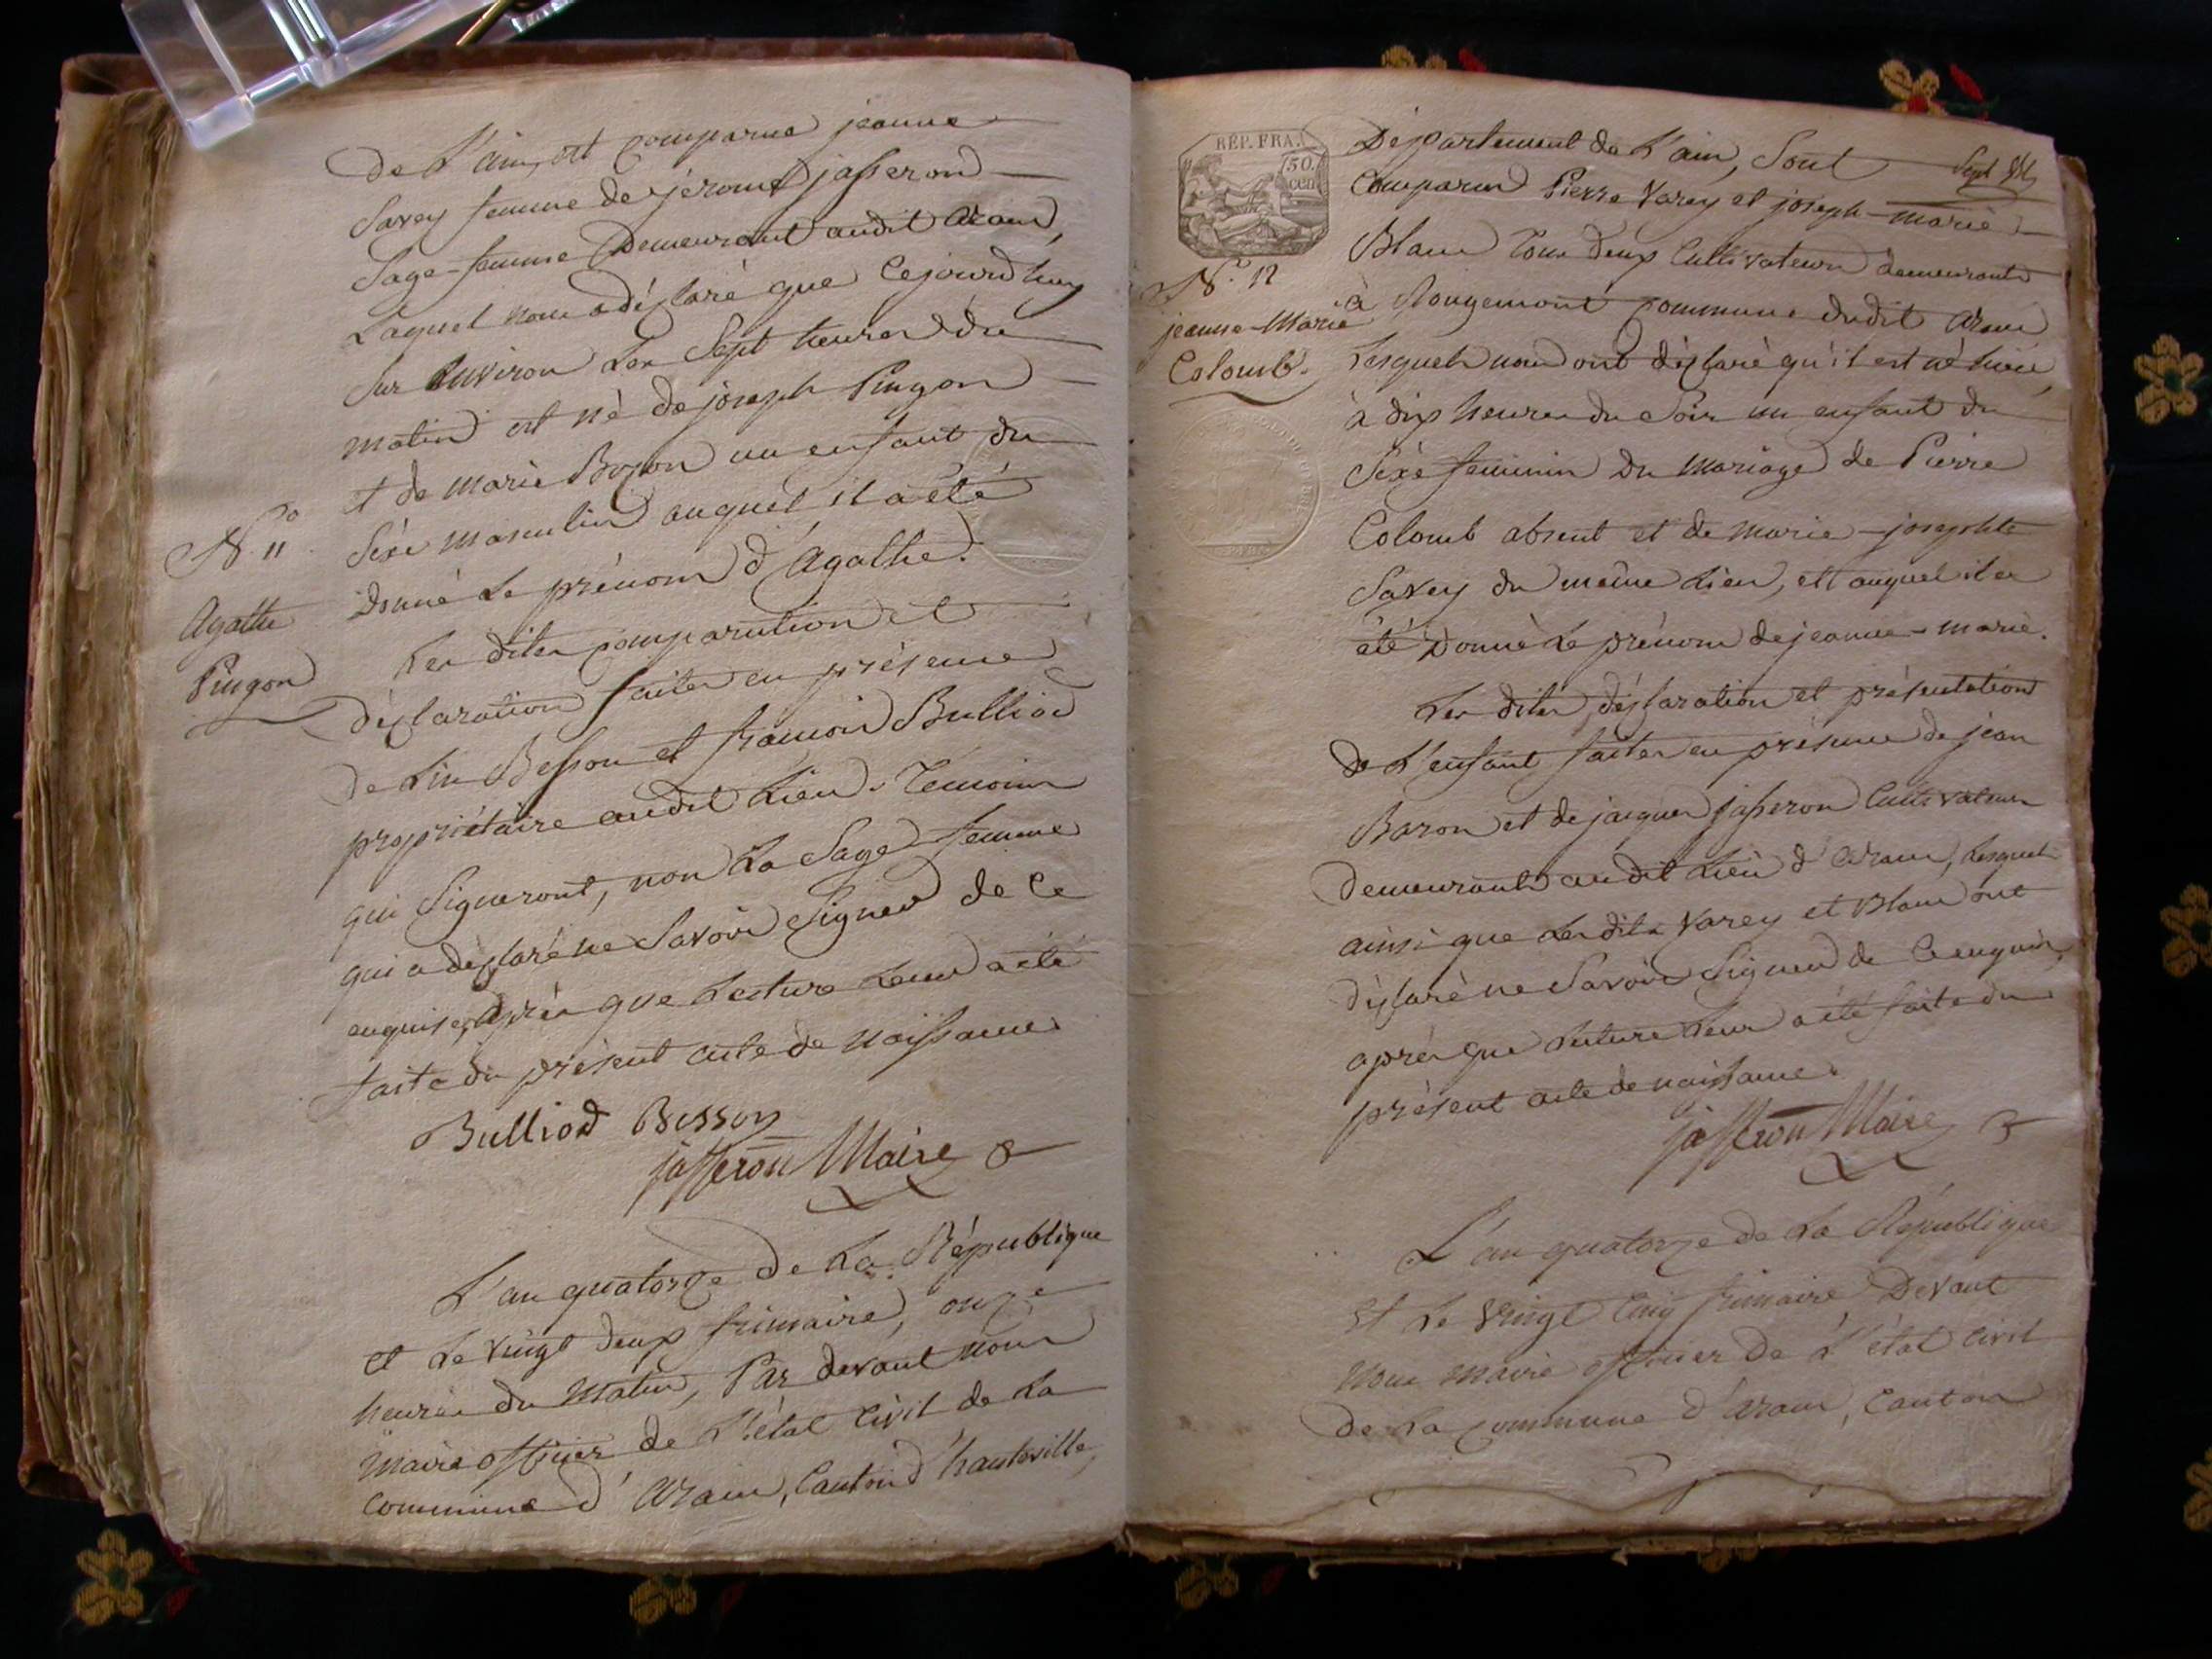 de L'ain, est comparue jeanne
Savey femme de jérome jasseron
Sage-femme Demeurant audit aranc,
Laquel nous a déclaré que Cejourd'huy
Sur Environ Les Sept heures du
matin est né de joseph Pingon
et de marie Bozon un enfant du
Séxe masculin auquel il a été
N.° 11
donné Le prénom d'Agathe.
Agathe
Pingon
Les dites comparution et
déclaration faites en présence
de Lin Besson et francois Bulliod
propriétaire audit Lieu, Temoins
qui Signeront, non La Sage-femme
qui a déclaré ne Savoir Signer de Ce
enquise, après que Lecture Leur a été
faite du présent acte de naissance
Bulliod Besson
jasseron Maire
L'an quatorze de La République
et Le vingt deux frimaire, onze
heures du matin, Par devant nous
Maire officier de L'état Civil de La
Commune d'aranc, Canton d'hauteville,
RÉP. FRA.
50.
cen
Département de L'ain, Sont
Sept
Comparus Pierre Varey et joseph-marie
Blanc Tous deux Cultivateurs demeurants
N.° 12
à Rougemont commune dudit aranc
jeanne-Marie
Colomb.
Lesquels nous ont déclaré qu'il est né hier
à dix heures du Soir un enfant du
Séxe feminin Du Mariage de Pierre
Colomb absent et de marie-josephte
Savey du même Lieu, et auquel il a
été Donné Le prénom de jeanne-marie.
Les dites déclaration et présentation
de L'enfant faites en présence de jean
Baron et de jacques jasseron Cultivateurs
demeurants audit Lieu d'aranc, Lesquels
ainsi que Les dits Varey et Blanc ont
déclaré ne Savoir Signer de Ce enquis,
après que Lecture Leur a été faite du
présent acte de naissance.
jasseron Maire
L'an quatorze de La République
et Le Vingt Cinq frimaire Devant
Nous maire officier de L'état Civil
de La commune d'aranc, Canton